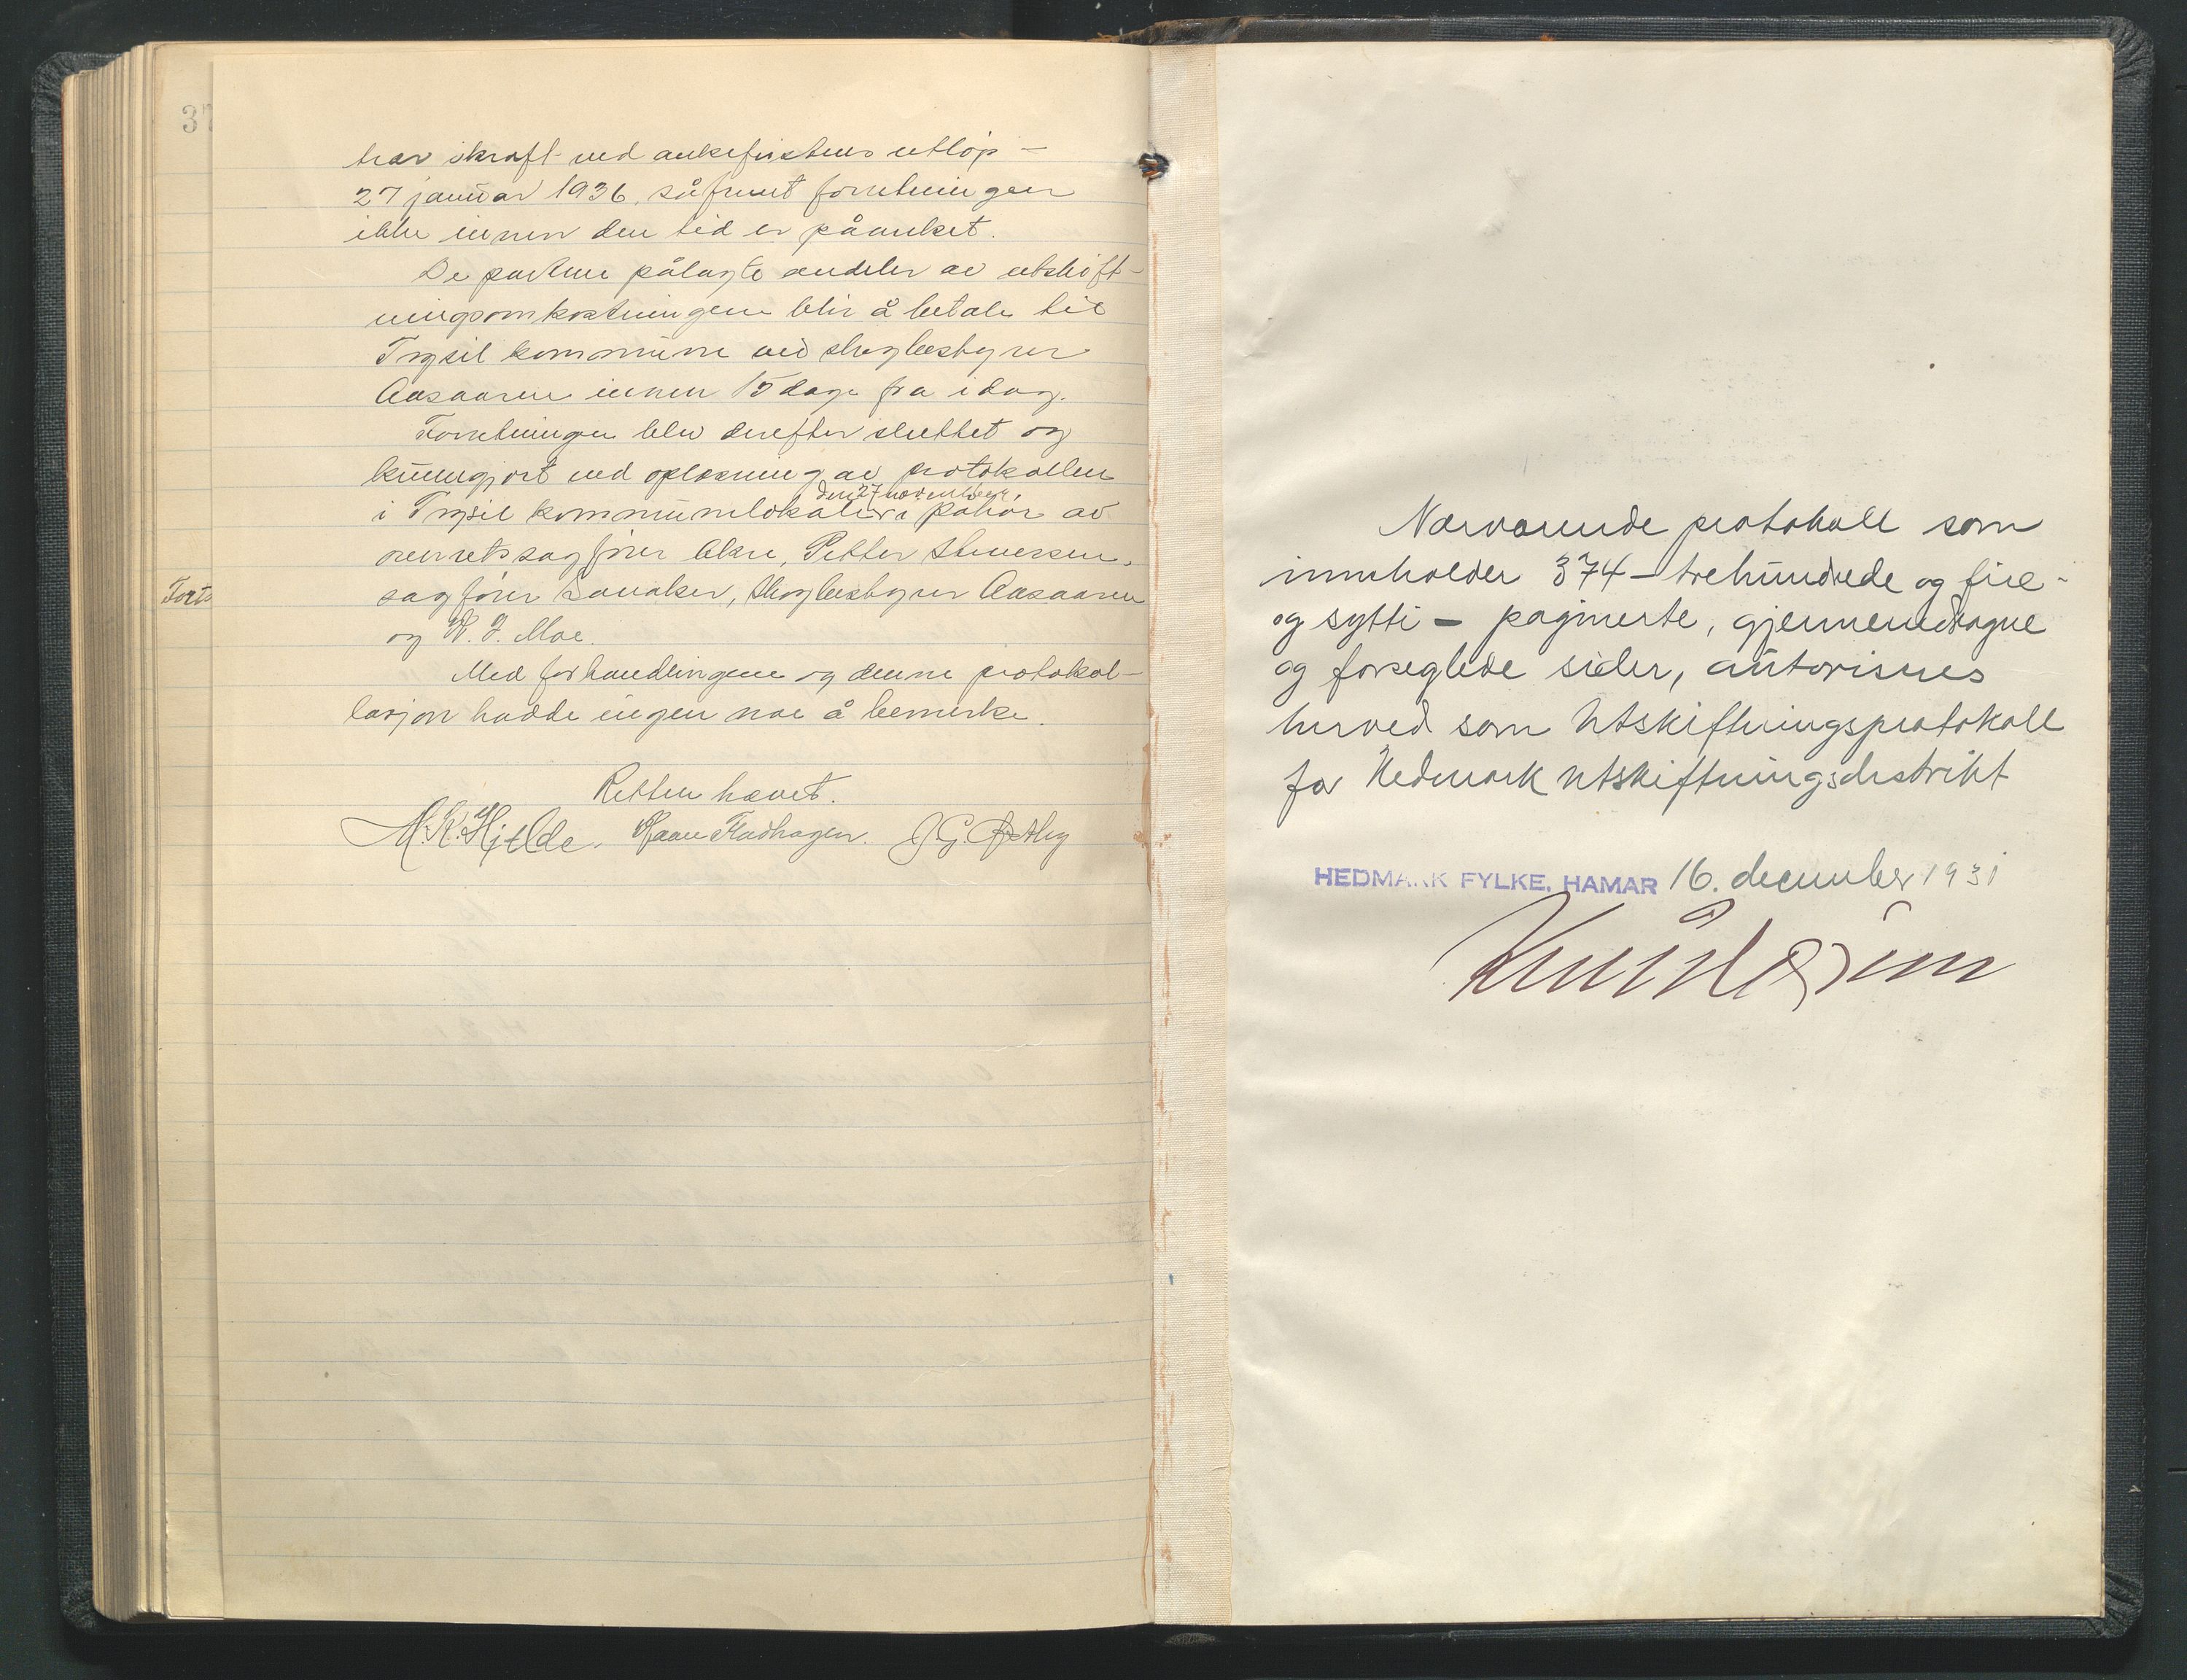 37
trær ikraft ved ankefristens utløp –
27 januar 1936, såfremt forretningen
ikke innen den tid er påanket.
De partene pålagte andeler av utskift-
ningsomkostningene blir å betale til
Trysil kommune ved skogbestyrer
Aasaaren innen 15 dage fra idag.
Forretningen blev derefter sluttet og
kunngjort ved oplæsning av protokollen
den 27 november,
i Trysil kommunelokale i påhør av
overretssagfører Økre, Petter Stenersen,
Forts
sagfører Lonaker, skogbestyrer Aasaaren
og H. J. Moe.
Med forhandlingene og denne protokol-
lasjon hadde ingen noe å bemerke.
Retten hævet.
M. K. Hjelde. Haavr Fladhagen. J. G.
Nærværende protokoll som
innholder 374 – trehundrede og fire-
og sytti – paginerte, gjennemdragne
og forseglede sider, autorisres
herved som Utskiftningsprotokoll
for Hedmark utskiftningsdistrikt
HEDMARK FYLKE, HAMAR 16. december 1931